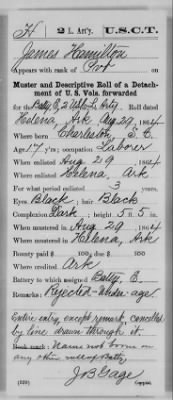 H | 2 L. Art'y. | U.S.C.T.
James Hamilton
Appears with rank of Pvt on
Muster and Descriptive Roll of a Detach-
ment of U. S. Vols. forwarded
for the Batty E, 2 U.S.C. L. Arty. Roll dated
Helena, Ark Aug 29, 1864
Where born Charleston, S.C.
Age 17 y'rs; occupation Laborer
When enlisted Aug 29, 1864
Where enlisted Helena, Ark
For what period enlisted 3 years.
Eyes Black; hair Black
Complexion Dark; height 5 ft. 5 in.
When mustered in Aug 29, 1864
Where mustered in Helena, Ark
Bounty paid $ 100; due $ 100
Where credited Ark
Battery to which assigned Batty E.
Remarks: Rejected—Under age
Entire entry, except remark, cancelled
by line drawn through it.
Book mark: Name not borne on
any other rolls of Batty,
J B Gage
(339) Copyist.